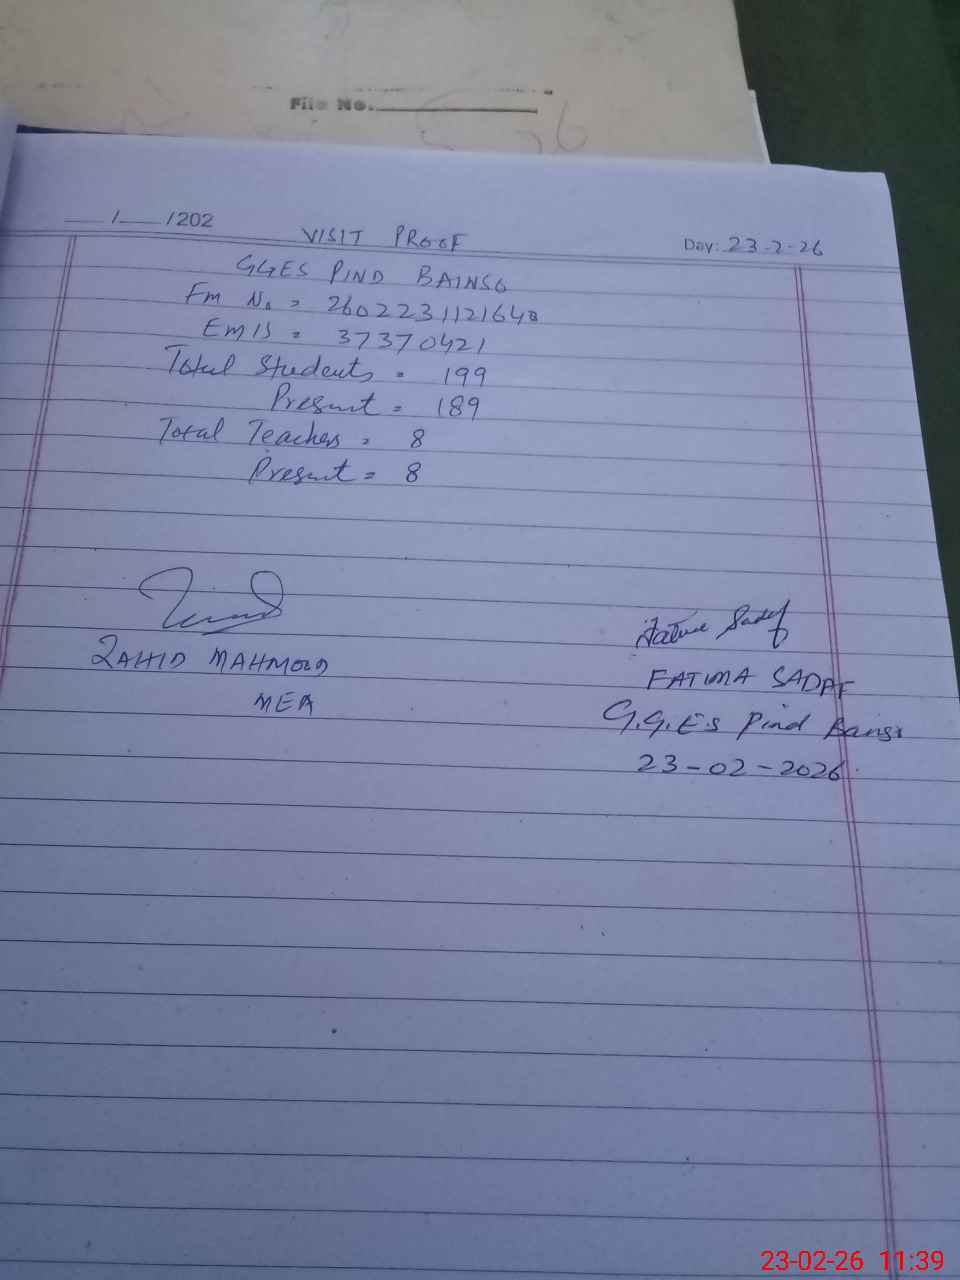 File No.
/ /202
VISIT PROOF
Day: 23-2-26
GGES PIND BAINSO
Fm No = 2602231121648
EMIS = 37370421
Total Students = 199
Present = 189
Total Teachers = 8
Present = 8
ZAHID MAHMOOD
MEA
Fatima Sadaf
FATIMA SADAF
G.G.E.S Pind Bains
23-02-2026
23-02-26 11:39